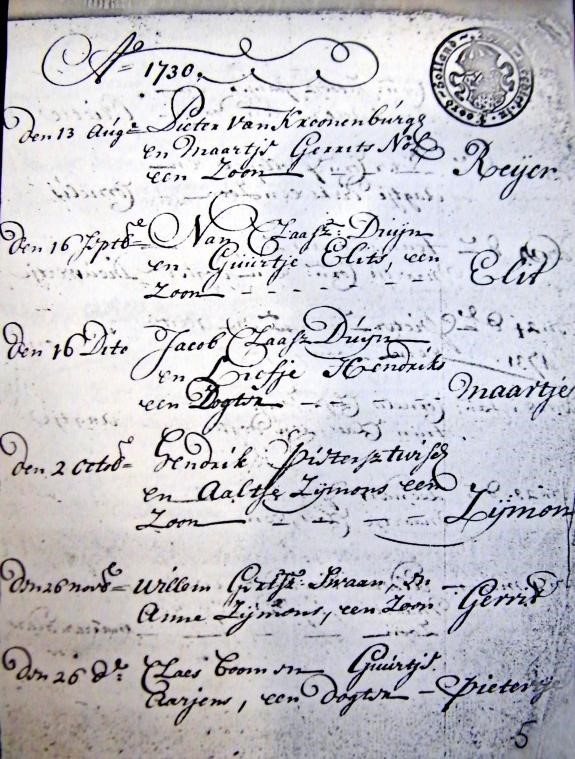 Ao 1730.
Den 13 Auge Pieter van Kroonenburgh
en Maartje Gerrits Nol
een Zoon Reijer
Den 16 Septbe Nan Claasz: Duijn
en Guurtje Elits, een Elit
Zoon
Den 16 Dito Jacob Claasz Duijn
en Liefje Hendriks
een Dogter Maartje
Den 2 Octobe Hendrik Pietersz
en Aaltje Zijmons een
Zoon Zijmon
Den 26 Novbe Willem Swaan, en
Anne Zijmons, een Zoon Gerrit
Den 26 De Claes Boom en Guurtje
Aarjens, een Dogter Pietertje
5